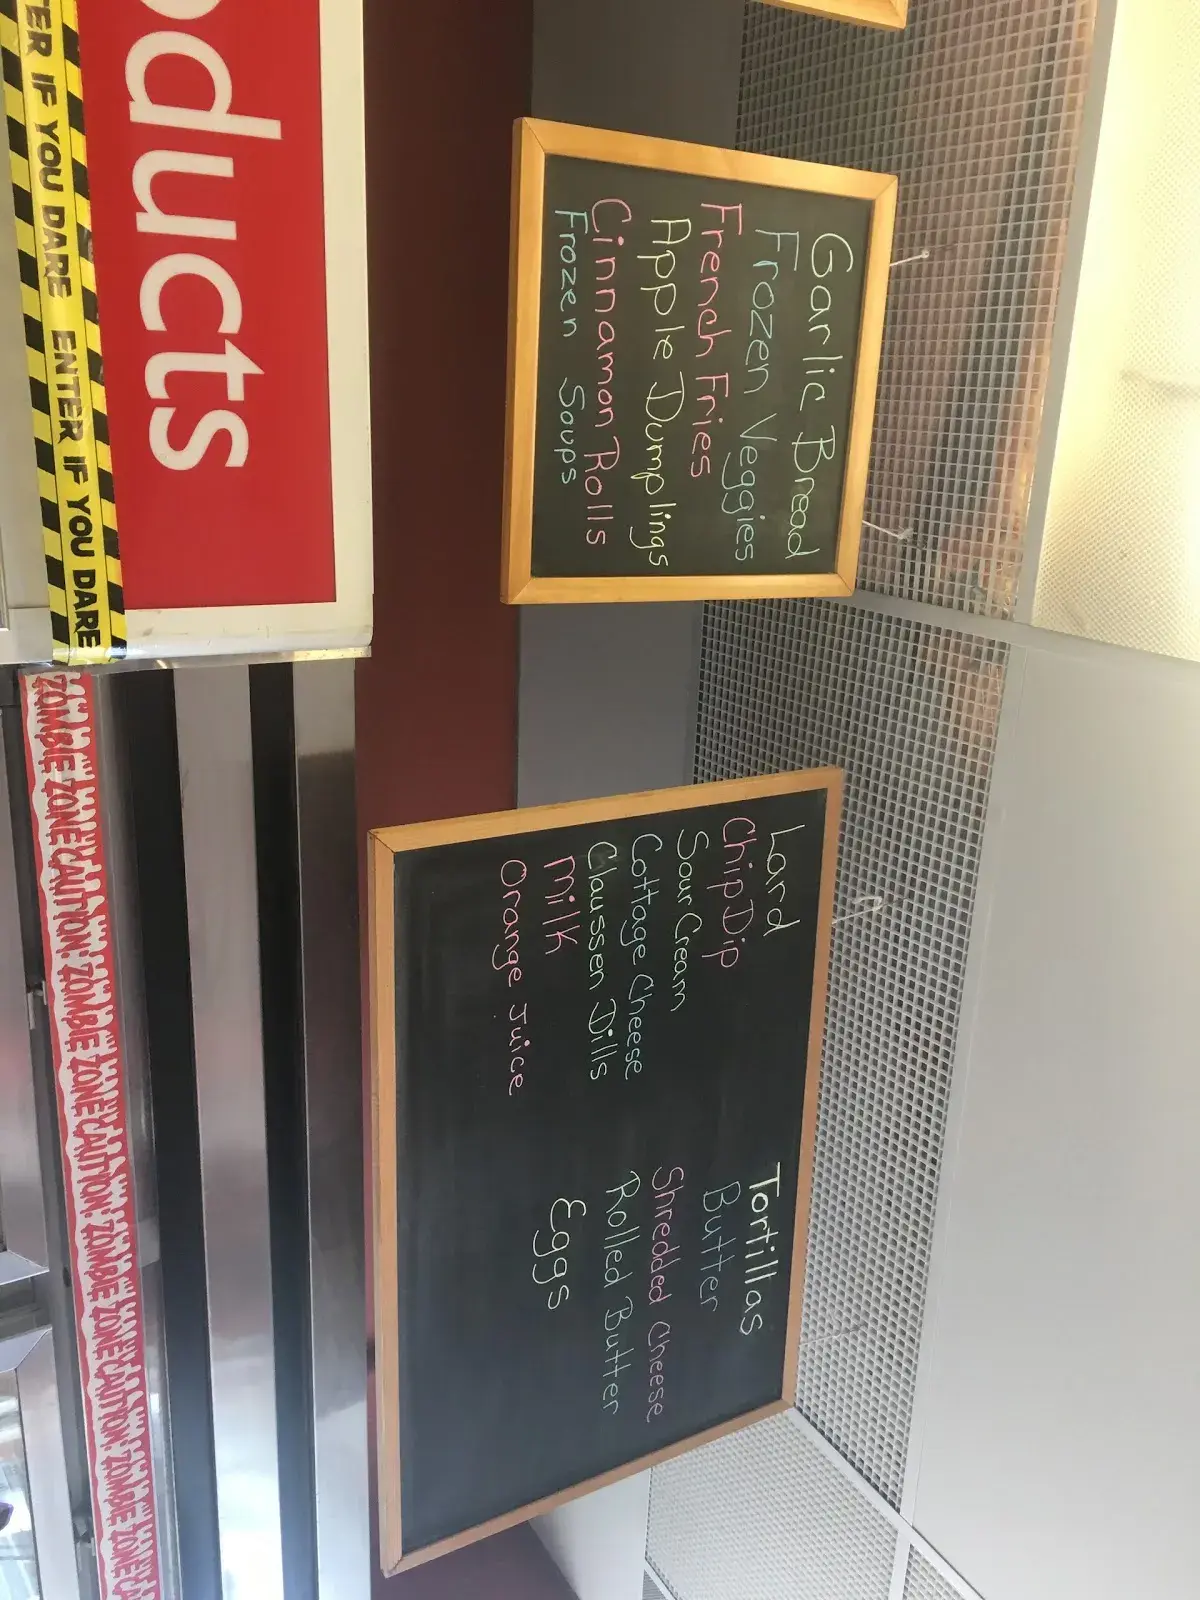 Garlic Bread
Frozen Veggies
French Fries
Apple Dumplings
Cinnamon Rolls
Frozen Soups
Lard
Chip Dip
Sour Cream
Cottage Cheese
Claussen Dills
Milk
Orange Juice
Tortillas
Butter
Shredded Cheese
Rolled Butter
Eggs
oducts
TER IF YOU DARE ENTER IF YOU DARE
ZOMBIE ZONE CAUTION: ZOMBIE ZONE CAUTION: ZOMBIE ZONE CAUTION: ZOMBIE ZONE CAUTION: ZOMBIE ZONE CA